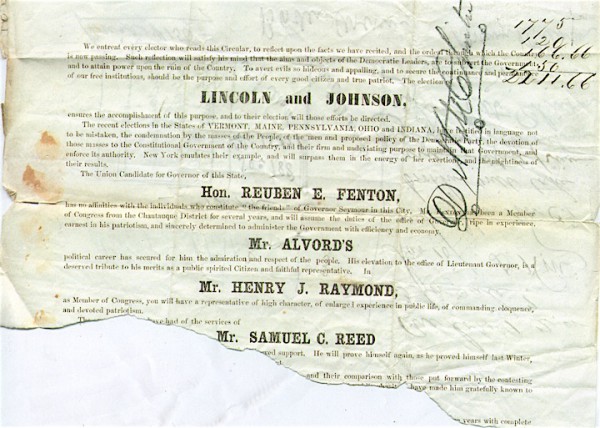 1775
We entreat every elector who reads this Circular, to reflect upon the facts we have recited, and the ordeal through which the
is now passing. Such reflection will satisfy his mind that the aims and objects of the Democratic Leaders, are to subvert the Government
and to attain power upon the ruin of the Country. To avert evils so hideous and appalling, and to secure the continuance and
of our free institutions, should be the purpose and effort of every good citizen and true patriot. The election
LINCOLN and JOHNSON,
ensures the accomplishment of this purpose, and to their election will those efforts be directed.
The recent elections in the States of VERMONT, MAINE, PENNSYLVANIA, OHIO and INDIANA, have testified in language not
to be mistaken, the condemnation by the masses of the People, of the men and proposed policy of the Democratic Party, the devotion of
those masses to the Constitutional Government of the Country, and their firm and undeviating purpose to maintain that Government, and
enforce its authority. New York emulates their example, and will surpass them in the energy of her exertions and the mightiness of
their results.
The Union Candidate for Governor of this State,
Hon. REUBEN E. FENTON,
has no affinities with the individuals who constitute "the friends" of Governor Seymour in this City. Mr. Fenton has been a Member
of Congress from the Chautauque District for several years, and will assume the duties of the office of Governor, ripe in experience,
earnest in his patriotism, and sincerely determined to administer the Government with efficiency and economy.
Mr. ALVORD'S
political career has secured for him the admiration and respect of the people. His elevation to the office of Lieutenant Governor, is a
deserved tribute to his merits as a public spirited Citizen and faithful representative. In
Mr. HENRY J. RAYMOND,
as Member of Congress, you will have a representative of high character, of enlarged experience in public life, of commanding eloquence,
and devoted patriotism.
have had of the services of
Mr. SAMUEL C. REED
support. He will prove himself again, as he proved himself last Winter,
and their comparison with those put forward by the contesting
have made him gratefully known to
years with complete